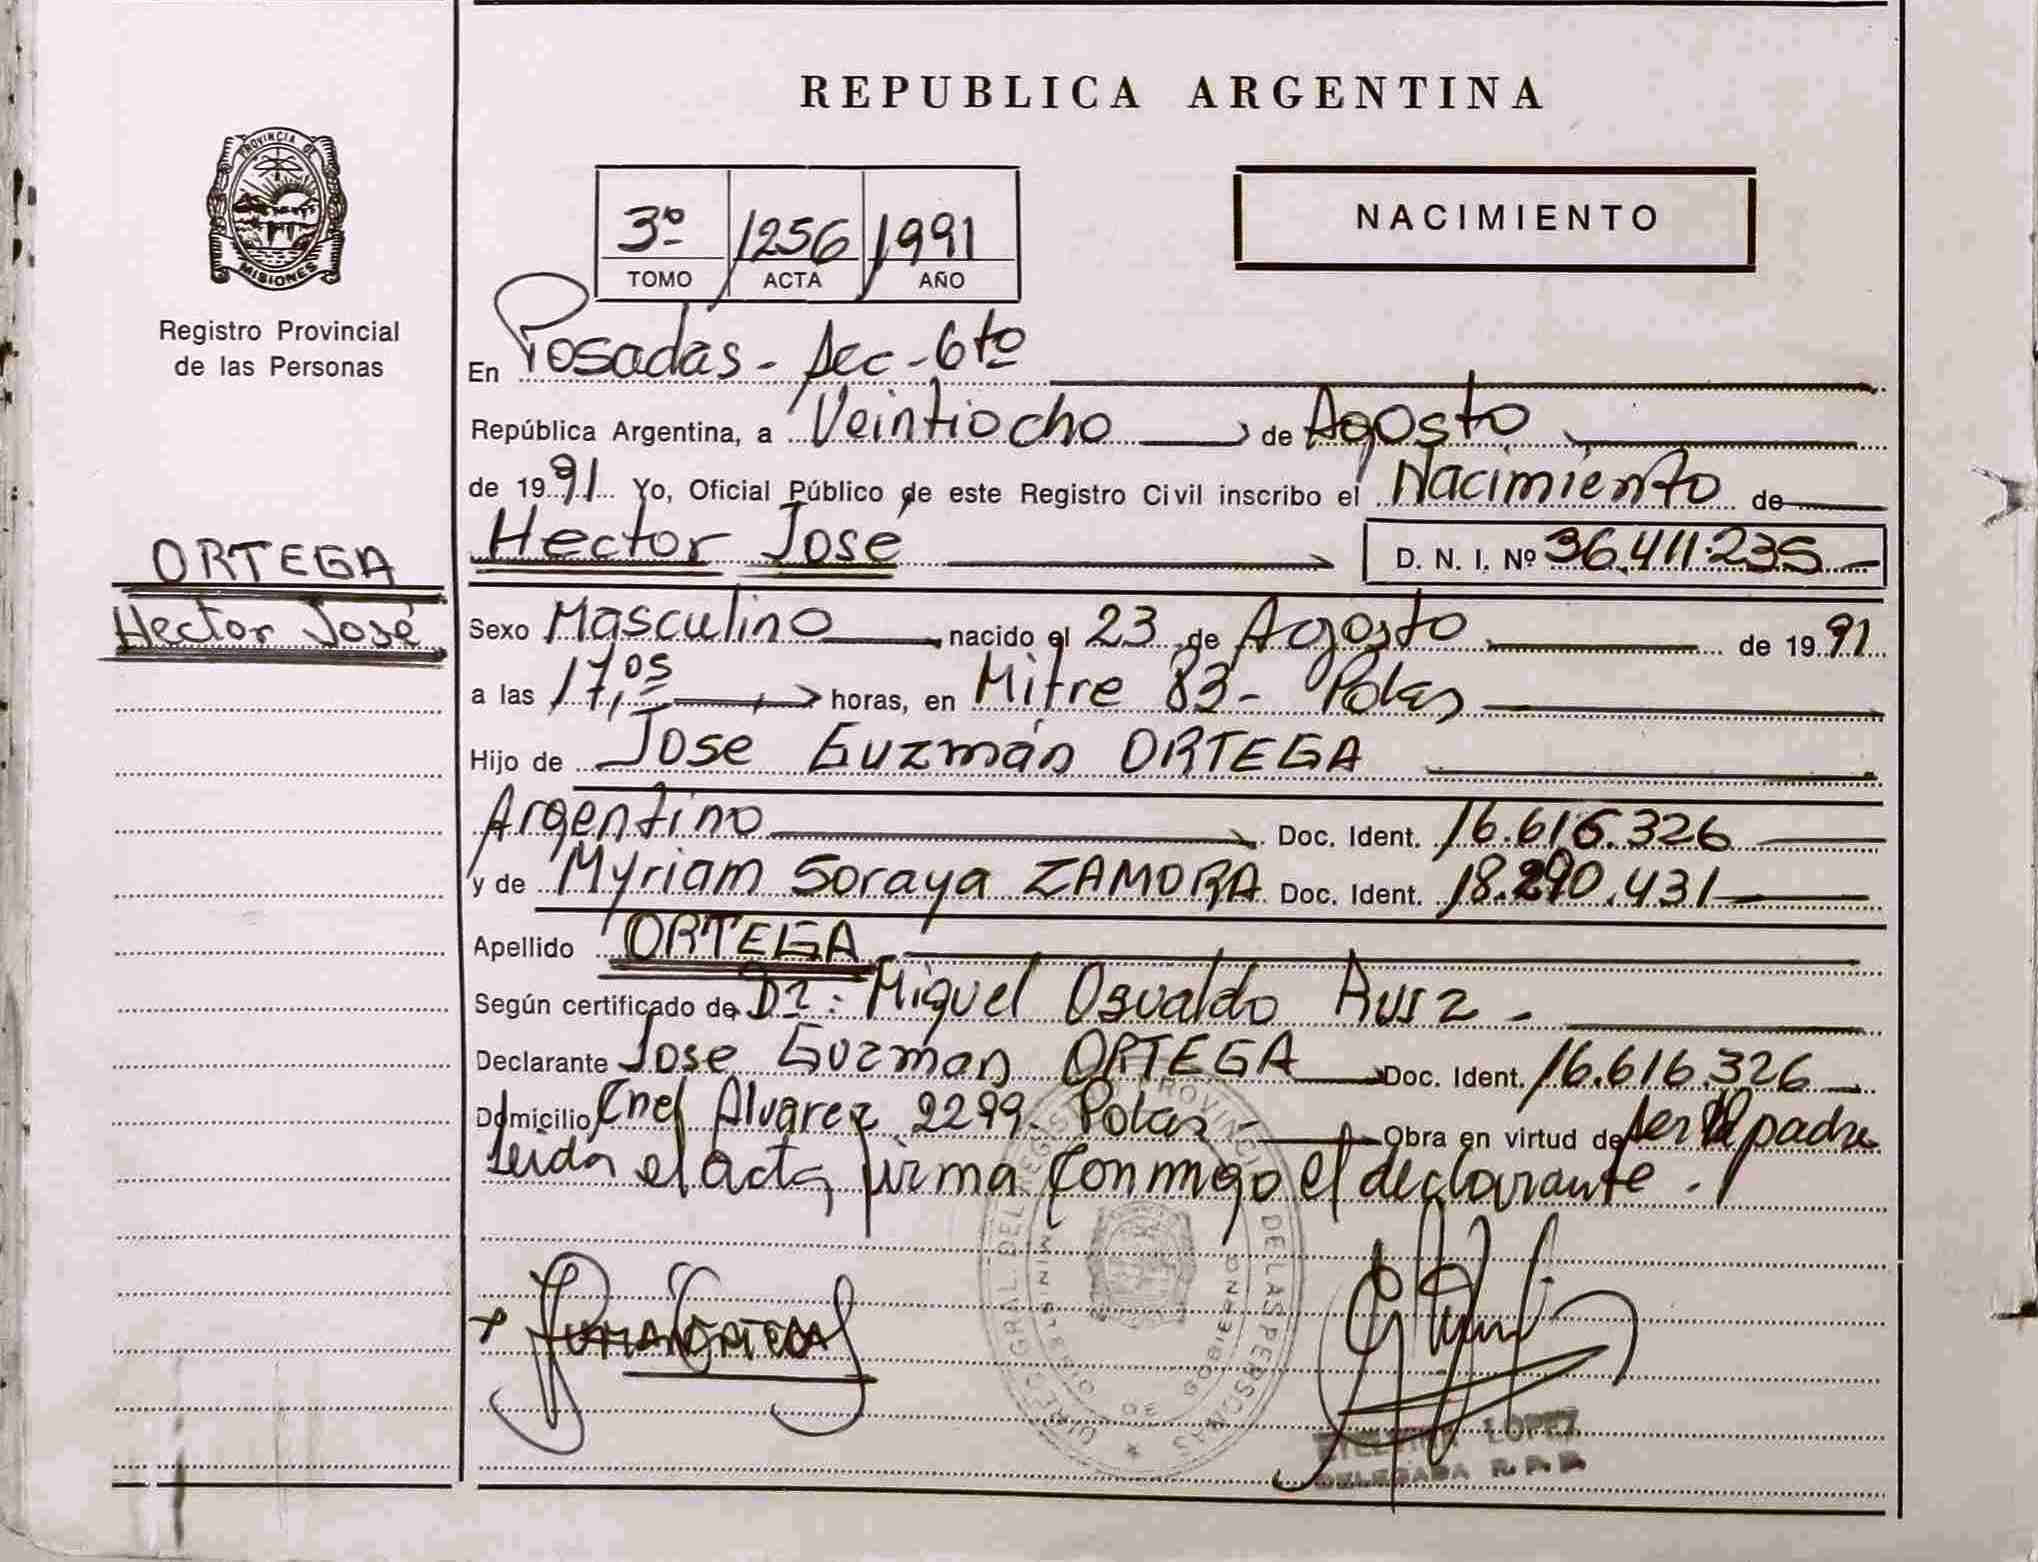 REPUBLICA ARGENTINA
PROVINCIA DE
MISIONES
Registro Provincial
de las Personas
3º 1256 1991
TOMO ACTA AÑO
NACIMIENTO
En Posadas - Sec - 6ta
República Argentina, a Veintiocho de Agosto
de 1991 Yo, Oficial Público de este Registro Civil inscribo el Nacimiento de
Hector José D. N. I. Nº 36.411.235
ORTEGA
Hector José
Sexo Masculino nacido el 23 de Agosto de 1991
a las 17,05 horas, en Mitre 83 - Pdas
Hijo de Jose Guzmán ORTEGA
Argentino Doc. Ident. 16.616.326
y de Myriam Soraya ZAMORA Doc. Ident. 18.290.431
Apellido ORTEGA
Según certificado de Dr: Miguel Osvaldo Ruiz -
Declarante Jose Guzman ORTEGA Doc. Ident. 16.616.326
Domicilio Cnel Alvarez 2299 - Pdas - Obra en virtud de ser el padre
Leida el acta firma conmigo el declarante.
DEL REGISTRO PROVINCIAL DE LAS PERSONAS
MINISTERIO DE GOBIERNO
ORTEGA
LOPEZ
DELEGADA R.P.P.